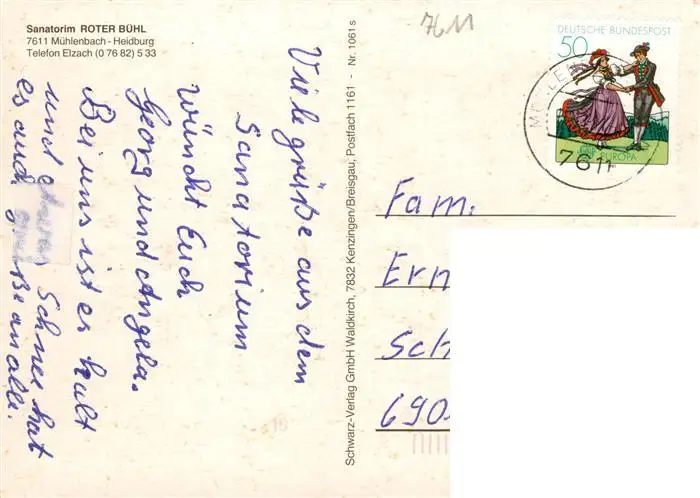 Sanatorim ROTER BÜHL
7611 Mühlenbach - Heidburg
Telefon Elzach (0 76 82) 5 33
Viele grüße aus dem
Sanatorium
wüncht Euch
Georg und Angela.
Bei uns ist es kalt
und etwas Schnee hat
es auch grüße an alle.
Schwarz-Verlag GmbH Waldkirch, 7832 Kenzingen/Breisgau, Postfach 1161 - Nr. 1061 s
7611
DEUTSCHE BUNDESPOST
50
EUROPA
7611
Fam.
Ern
Sch
690